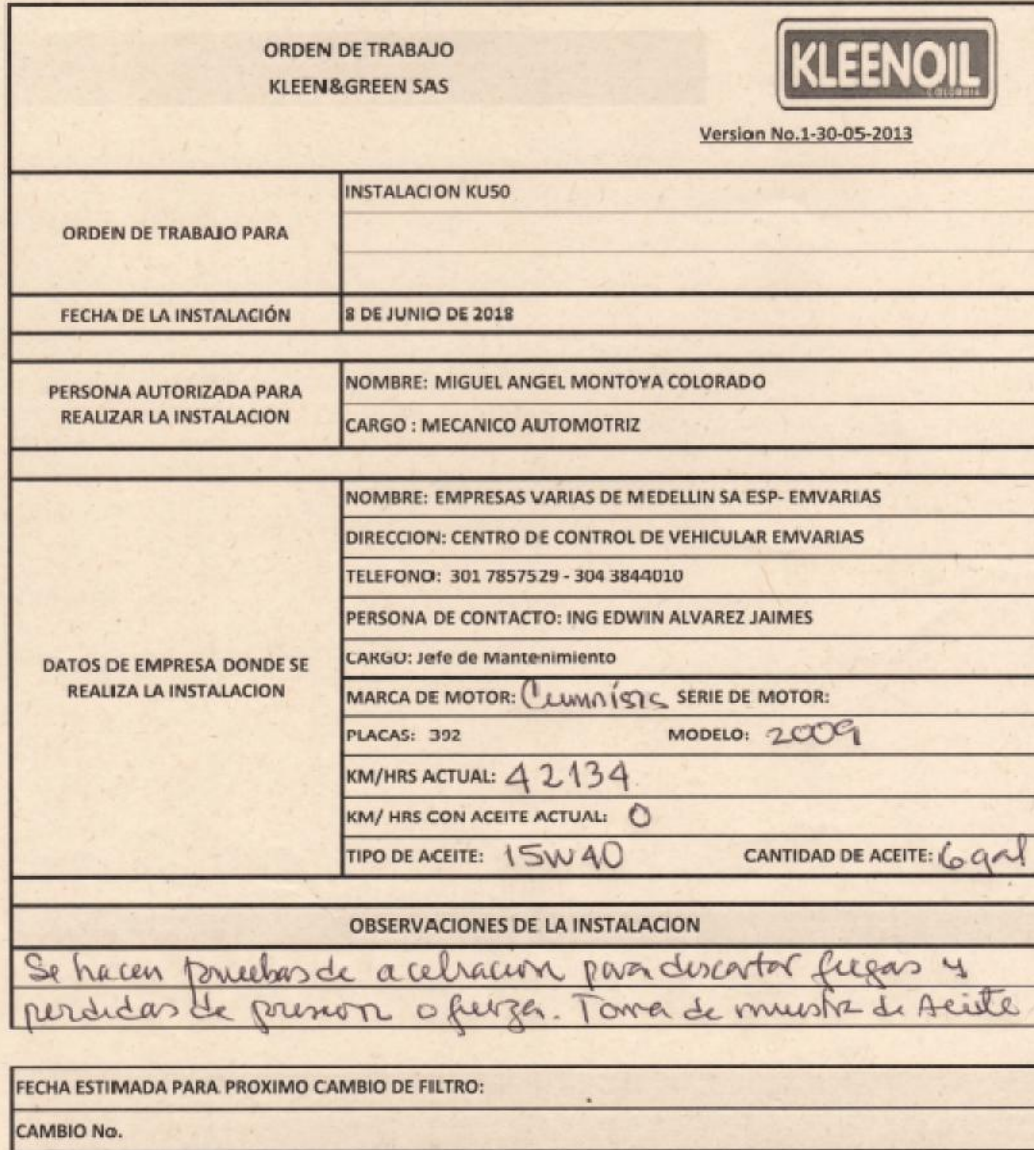 ORDEN DE TRABAJO
KLEEN&GREEN SAS
KLEENOIL
COLOMBIA
Version No.1-30-05-2013
ORDEN DE TRABAJO PARA
INSTALACION KU50
FECHA DE LA INSTALACIÓN
8 DE JUNIO DE 2018
PERSONA AUTORIZADA PARA
REALIZAR LA INSTALACION
NOMBRE: MIGUEL ANGEL MONTOYA COLORADO
CARGO : MECANICO AUTOMOTRIZ
DATOS DE EMPRESA DONDE SE
REALIZA LA INSTALACION
NOMBRE: EMPRESAS VARIAS DE MEDELLIN SA ESP- EMVARIAS
DIRECCION: CENTRO DE CONTROL DE VEHICULAR EMVARIAS
TELEFONO: 301 7857529 - 304 3844010
PERSONA DE CONTACTO: ING EDWIN ALVAREZ JAIMES
CARGO: Jefe de Mantenimiento
MARCA DE MOTOR: Cumnisis SERIE DE MOTOR:
PLACAS: 392 MODELO: 2009
KM/HRS ACTUAL: 42134
KM/ HRS CON ACEITE ACTUAL: 0
TIPO DE ACEITE: 15W40 CANTIDAD DE ACEITE: 6 gal
OBSERVACIONES DE LA INSTALACION
Se hacen pruebas de acelracion para descartar fugas y
perdidas de presion o fuerza. Toma de muestra de Aceite
FECHA ESTIMADA PARA PROXIMO CAMBIO DE FILTRO:
CAMBIO No.